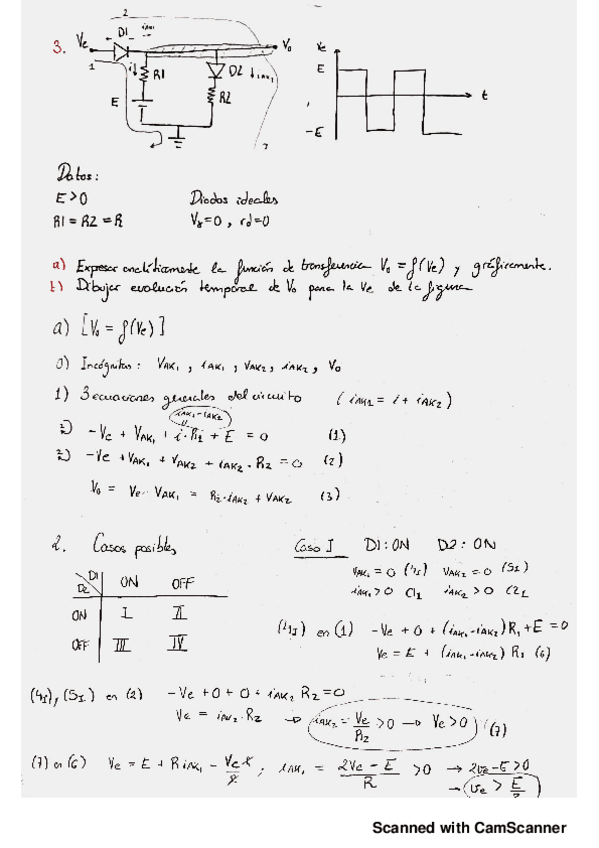 3.
Ve
D1
iAK1
2
Vo
1
i↓
R1
D2
↓iAK2
E
R2
Ve
E
-E
t
Datos:
E>0 Diodos ideales
R1 = R2 = R Vγ=0 , rd=0
a) Expresar analíticamente la función de transferencia Vo = f(Ve) y gráficamente.
b) Dibujar evolución temporal de Vo para la Ve de la figura
a) [Vo = f(Ve)]
0) Incógnitas: VAK1 , iAK1 , VAK2 , iAK2 , Vo
1) 3 ecuaciones generales del circuito ( iAK1 = i + iAK2 )
iAK1-iAK2
-Ve + VAK1 + i·R1 + E = 0 (1)
-Ve + VAK1 + VAK2 + iAK2·R2 = 0 (2)
Vo = Ve - VAK1 = R2·iAK2 + VAK2 (3)
2. Casos posibles
D1
D2
ON OFF
ON I II
OFF III IV
Caso I D1: ON D2: ON
VAK1 = 0 (4I) VAK2 = 0 (5I)
iAK1 > 0 CI1 iAK2 > 0 CI2
(4I) en (1) -Ve + 0 + (iAK1-iAK2)R1 + E = 0
Ve = E + (iAK1-iAK2) R1 (6)
(4I), (5I) en (2) -Ve + 0 + 0 + iAK2 R2 = 0
Ve = iAK2·R2 → iAK2 = Ve/R2 > 0 → Ve > 0 (7)
(7) en (6) Ve = E + R iAK1 - Ve R/R ; iAK1 = 2Ve - E/R > 0 → 2Ve - E > 0
→ Ve > E/2
Scanned with CamScanner